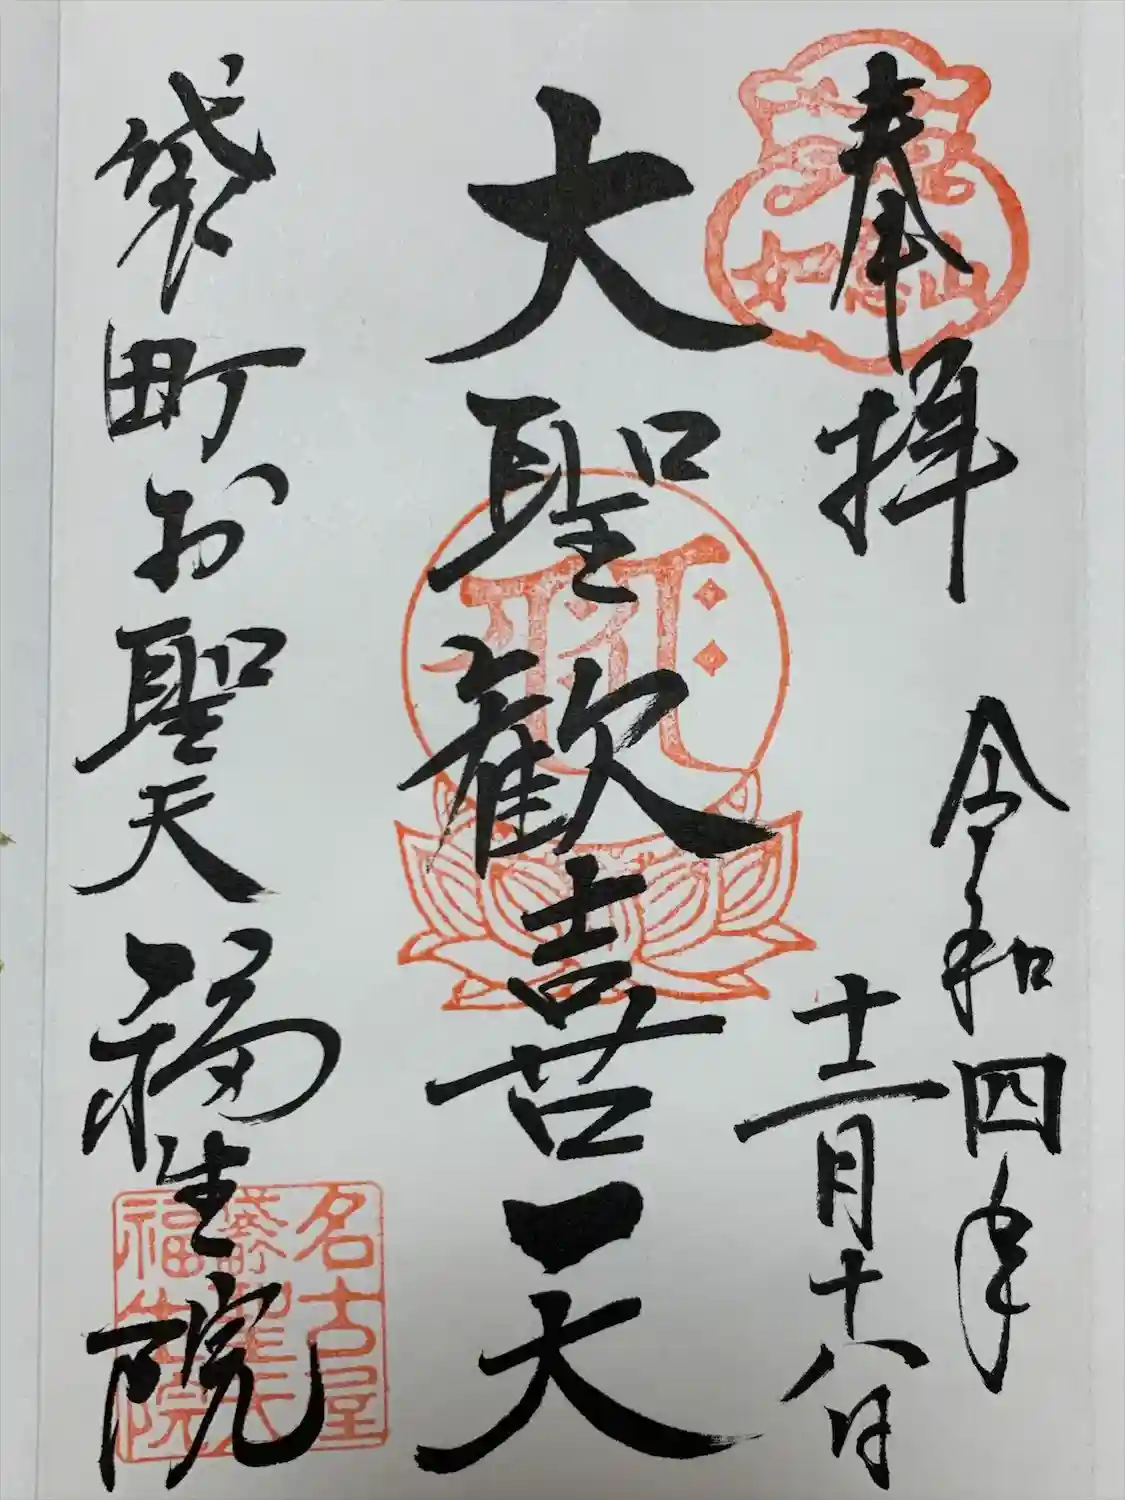 奉拝
如意山
令和四年
十二月十八日
大聖歓喜天
袋町お聖天
福生院
名古屋
袋町聖天
福生院